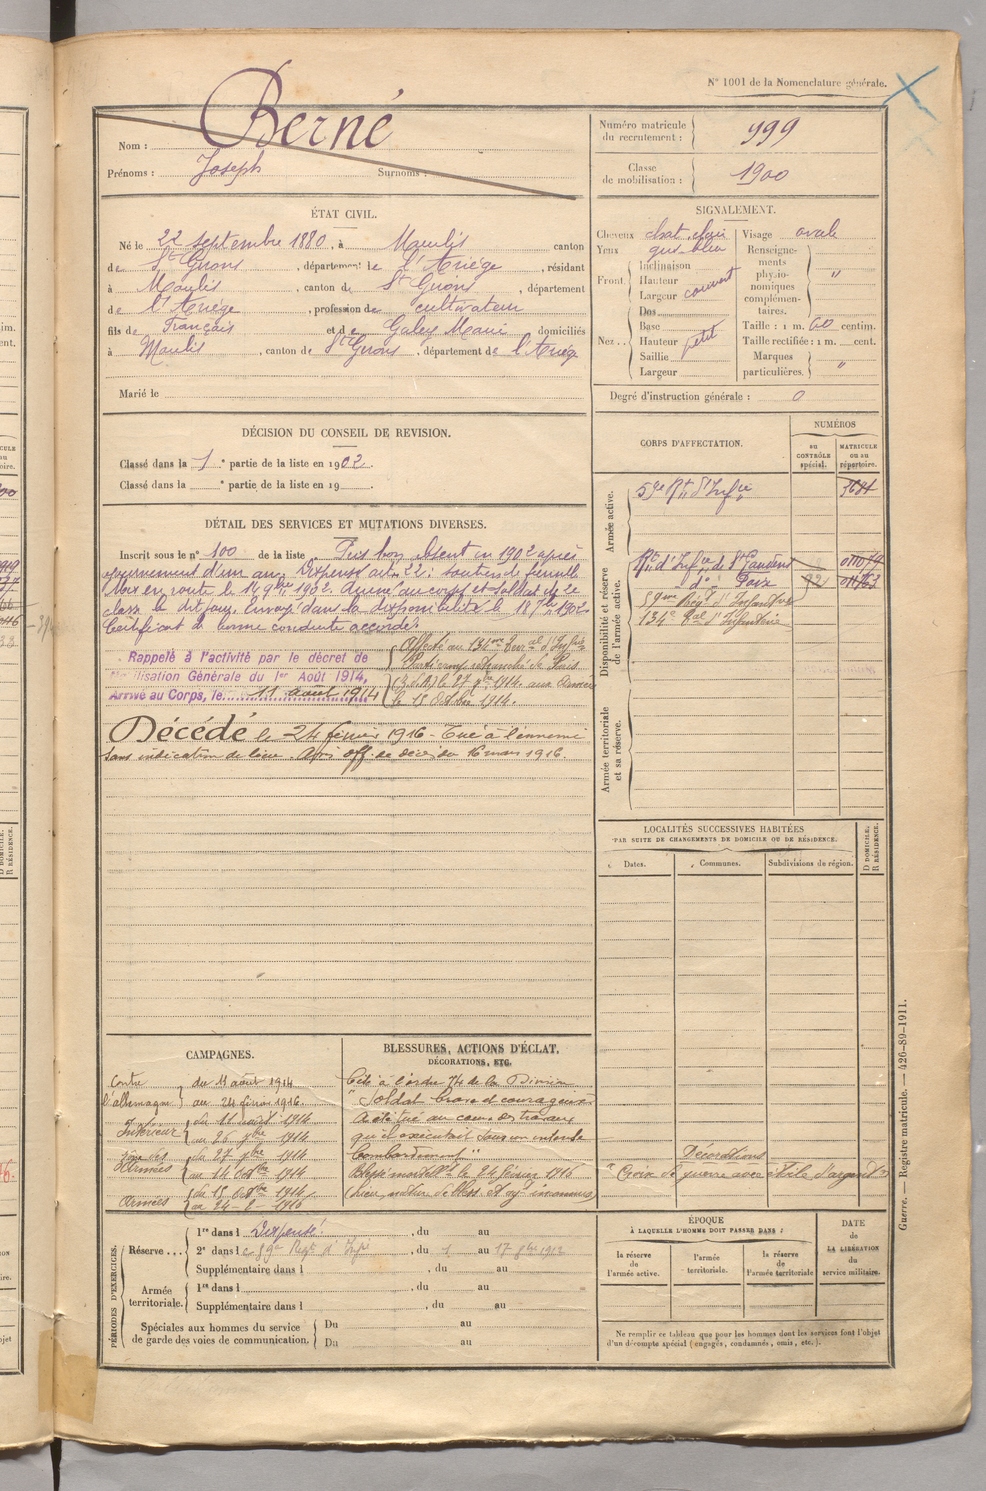 N° 1001 de la Nomenclature générale.
Nom : Berné
Prénoms : Joseph Surnoms :
Numéro matricule du recrutement : 999
Classe de mobilisation : 1900
ÉTAT CIVIL.
Né le 22 septembre 1880, à Moulis canton
de St Girons, département de l'Ariège, résidant
à Moulis, canton de St Girons, département
de l'Ariège, profession de cultivateur
fils de François et de Galey Marie domiciliés
à Moulis, canton de St Girons, département de l'Ariège
Marié le
SIGNALEMENT.
Cheveux chat. clair Visage ovale
Yeux gris-bleu
Front. Inclinaison
Hauteur
Largeur couvert
Nez.. Dos
Base
Hauteur petit
Saillie
Largeur
Renseignements physionomiques complémentaires. "
Taille : 1 m. 60 centim.
Taille rectifiée : 1 m. cent.
Marques particulières. "
Degré d'instruction générale : 0
DÉCISION DU CONSEIL DE REVISION.
Classé dans la 1e partie de la liste en 1902.
Classé dans la e partie de la liste en 19
CORPS D'AFFECTATION.
NUMÉROS
AU CONTRÔLE spécial.
MATRICULE ou au répertoire.
Armée active.
59e Rt d'Infie
Disponibilité et réserve de l'armée active.
Rt d'Infie de St Gaudens
do Foix
59me Régt d'Infanterie
134e Ral d'Infanterie
Armée territoriale et sa réserve.
DÉTAIL DES SERVICES ET MUTATIONS DIVERSES.
Inscrit sous le n° 100 de la liste Pris bon absent en 1902 après
ajournement d'un an. Dispensé art. 22: soutien de famille
Mis en route le 14 9bre 1902. Arrivé au corps et soldat de 2e
classe le dit jour. Envoyé dans la disponibilité le
Certificat de bonne conduite accordé.
Rappelé à l'activité par le décret de
Mobilisation Générale du 1er Août 1914,
Arrivé au Corps, le 11 août 1914
Affecté au 134me Terral d'Infie
Camp retranché de Paris
le 27 7bre 1914. aux Armées
le 15 Octobre 1914.
Décédé le 24 février 1916 - Tué à l'ennemi
sans indication de lieu. Avis off. de décès du 16 mars 1916.
LOCALITÉS SUCCESSIVES HABITÉES
PAR SUITE DE CHANGEMENTS DE DOMICILE OU DE RÉSIDENCE.
Dates. Communes. Subdivisions de région.
D DOMICILE. R RÉSIDENCE.
CAMPAGNES.
Contre l'allemagne du 11 août 1914
au 24 février 1916
Intérieur du 11 août 1914
au 26 7bre 1914
Zone des Armées du 27 7bre 1914
au 14 octbre 1914
Armées du 15 octbre 1914
au 24-2-1916
BLESSURES, ACTIONS D'ÉCLAT.
DÉCORATIONS, ETC.
Cité à l'ordre 74 de la Division
"Soldat brave et courageux
a été tué au cours des travaux
qu'il exécutait sous un intense
bombardement"
Blessé mortellt le 24 février 1916
(lieu, nature de bless. et ag. inconnus)
Décorations
Croix de guerre avec étoile d'argent
PÉRIODES D'EXERCICES.
Réserve... 1re dans l Dispensé, du au
2e dans l e 59e Régt d'Infie, du 1 au 17 8bre 1912
Supplémentaire dans l, du au
Armée territoriale. 1re dans l, du au
Supplémentaire dans l, du au
Spéciales aux hommes du service de garde des voies de communication. Du au
Du au
ÉPOQUE
À LAQUELLE L'HOMME DOIT PASSER DANS :
la réserve de l'armée active.
l'armée territoriale.
la réserve de l'armée territoriale
DATE de LA LIBÉRATION du service militaire.
Ne remplir ce tableau que pour les hommes dont les services font l'objet
d'un décompte spécial (engagés, condamnés, omis, etc.).
Guerre. — Registre matricule. — 426-89-1911.